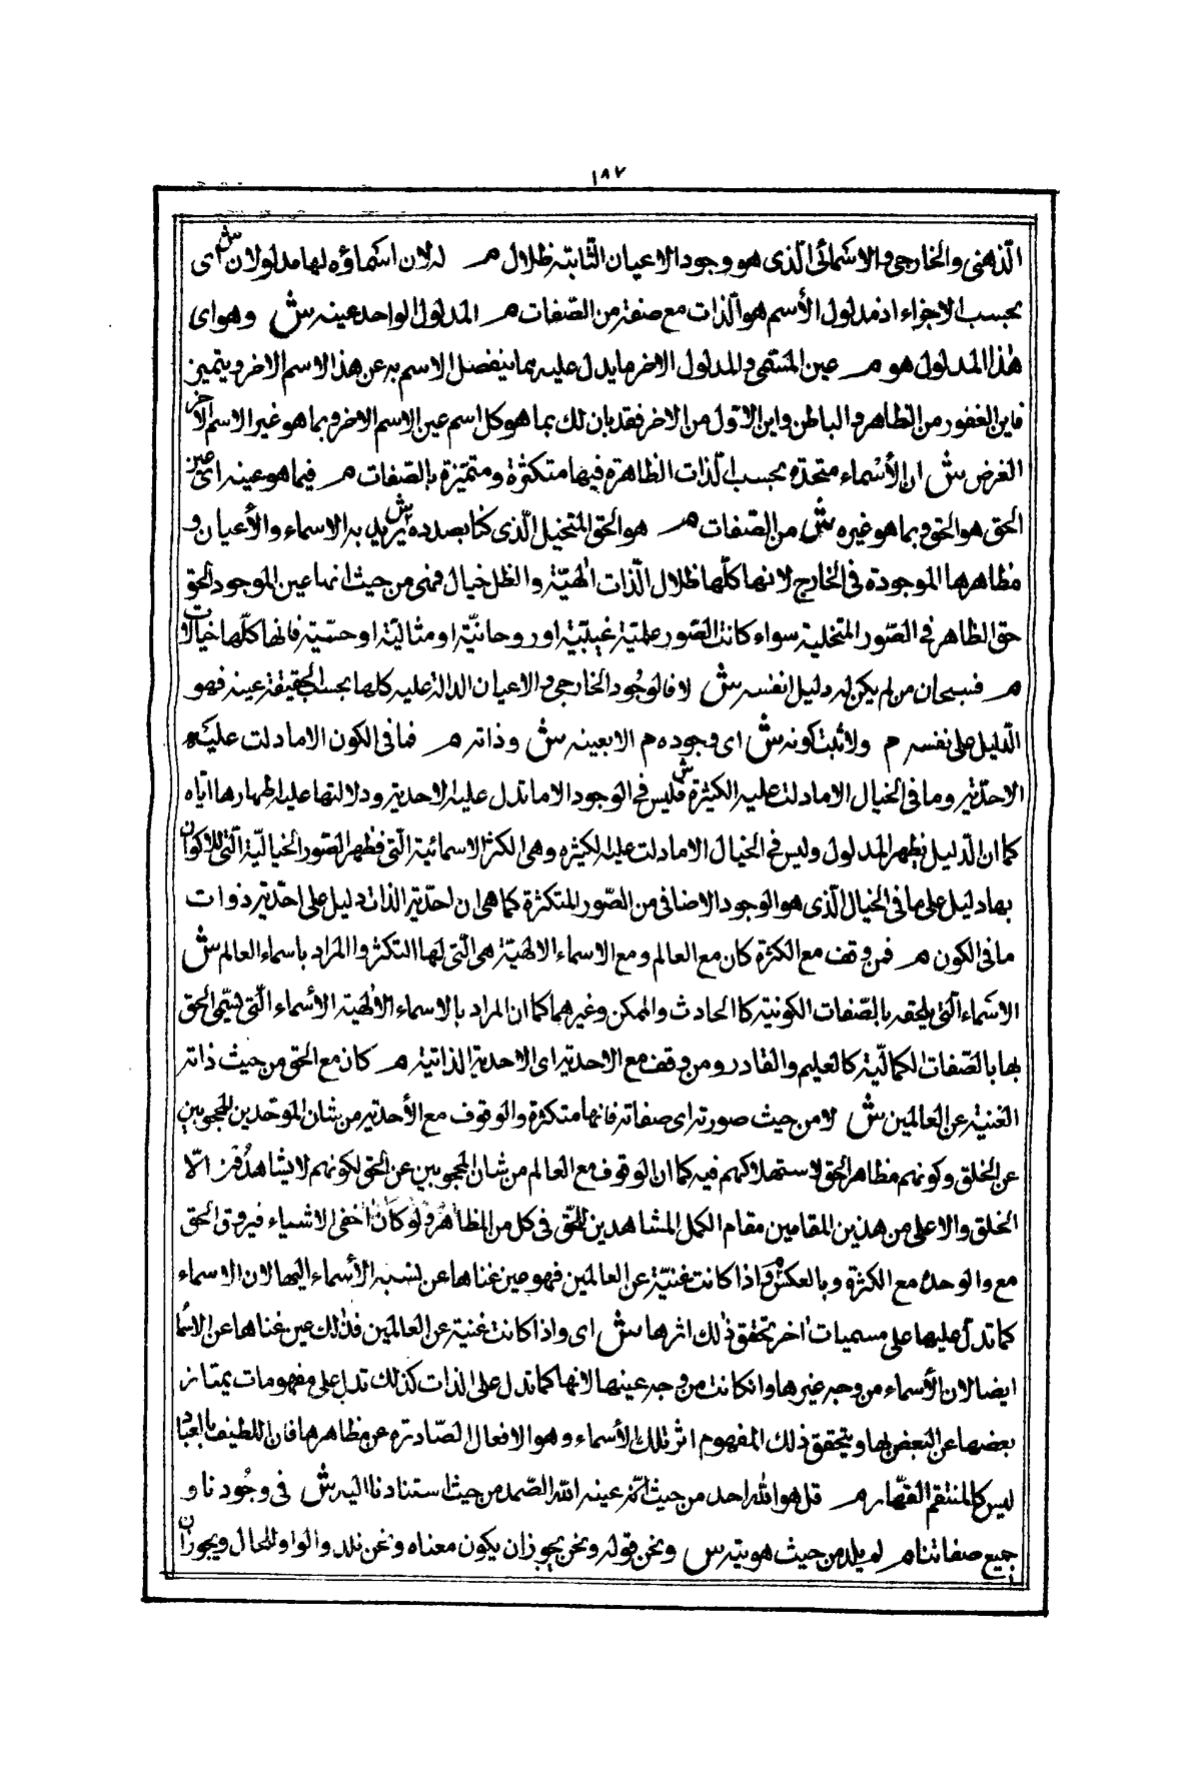 ١٨٧
الذهنى والخارجى والاسمائى الذى هو وجود الاعيان الثابتة ظلال م له لان اسماؤه لها مدلولان ش اى
بحسب الاجزاء اذ مدلول الأسم هو الذات مع صفة من الصفات م المدلول الواحد عينه ش وهو اى
هذا المدلول هو م عين المسمى والمدلول الاخر ما يدل عليه مما ينفصل الاسم به عن هذا الاسم الاخر ويتميز
فاين الغفور من الظاهر والباطن واين الاول من الاخر فقد بان لك بما هو كل اسم عين الاسم الاخر وبما هو غير الاسم الاخر
الغرض ش ان الأسماء متحدة بحسب الذات الظاهرة فيها متكثرة ومتميزة بالصفات م فيما هو عينه اى عين
الحق هو الحق وبما هو غيره ش من الصفات م هو الحق المتخيل الذى كنا بصدده ش يريد به الاسماء والأعيان و
مظاهرها الموجودة فى الخارج لانها كلها ظلال الذات الهية والظل خيال فمنى من حيث انها عين الموجود الحق
حق الظاهر فى الصور المتخلية سواء كانت الصور علمية غيبية او روحانية او مثالية او حسية فانها كلها خيالات
م فسبحان من لم يكن له دليل انفسه ش لا فالوجود الخارجى والاعيان الدالة عليه كلها بحسب الحقيقة عينه فهو
الدليل على نفسه م ولا ثبت كونه ش اى وجوده م الا بعينه ش وذاته م فما فى الكون الا ما دلت عليه
الاحدية وما فى الخيال الا ما دلت عليه الكثرة ش فليس فى الوجود الا ما تدل عليه الاحدية ودلالتها عليه اظهارها اياه
كما ان الدليل يظهر المدلول وليس فى الخيال الا ما دلت عليه الكثرة وهى الكثرة الاسمائية التى فظهر الصور الخيالية التى للاكوان
بها دليل على ما فى الخيال الذى هو الوجود الاضافى من الصور المتكثرة كما هى ان احدية الذات دليل على احدية ذوات
ما فى الكون م فمن وقف مع الكثرة كان مع العالم ومع الاسماء الالهية هى التى لها التكثر والمراد باسماء العالم ش
الاسماء التى يلحقه بالصفات الكونية كالحادث والممكن وغيرهما كما ان المراد بالاسماء الالهية الأسماء التى تسمى الحق
بها بالصفات الكمالية كالعليم والقادر ومن وقف مع الاحدية اى الاحدية الذاتية م كان مع الحق من حيث ذاته
الغنية عن العالمين ش لا من حيث صورته اى صفاته فانها متكثرة والوقوف مع الأحدية من شان الموحدين المحجوبين
عن الخلق وكونهم مظاهر الحق لاستهلاكهم فيه كما ان الوقوف مع العالم من شان المحجوبين عن الحق لكونهم لا يشاهدون الا
الخلق والاعلى من هذين المقامين مقام الكمل المشاهدين للحق فى كل من المظاهر ولو كان اخفى الاشياء فيروق الحق
مع والوحدة مع الكثرة وبالعكس م واذا كانت غنية عن العالمين فهو عين غناها عن نسبة الأسماء اليها لان الاسماء
كما تدل عليها على مسميات اخر تحقق ذلك اثرها ش اى واذا كانت غنية عن العالمين فذلك عين غناها عن الاسماء
ايضا لان الأسماء من وجه غيرها وانكانت من وجه عينها لانها كما تدل على الذات كذلك تدل على مفهومات يمتاز
بعضها عن البعض بها ويتحقق ذلك المفهوم اثر تلك الأسماء وهو الافعال الصادرة عن مظاهرها فان اللطيف بالعباد
ليس كالمنتقم القهار م قل هو الله احد من حيث انه عينه الله الصمد من حيث استنادنا اليه ش فى وجودنا و
جميع صفاتنا م لم يلد من حيث هويته س ونحن قوله ونحن يجوز ان يكون معناه ونحن نلد والواو للحال ويجوز ان